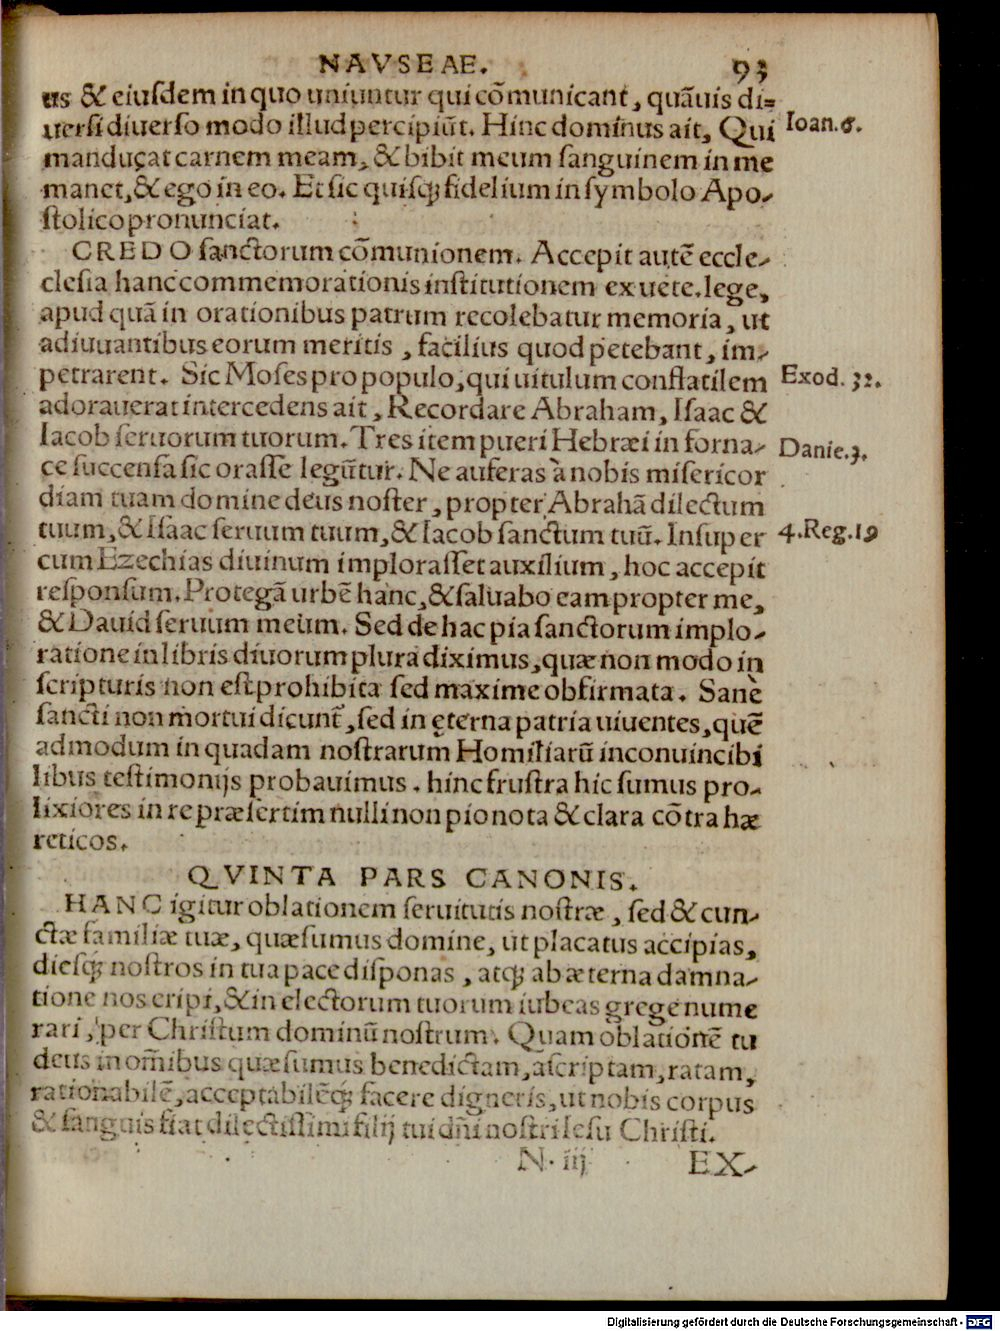 NAVSEAE. 93
us & eiusdem in quo uniuntur qui cōmunicant, quāuis di=
uersi diuerso modo illud percipiūt. Hinc dominus ait, Qui Ioan. 6.
manducat carnem meam, & bibit meum sanguinem in me
manet, & ego in eo. Et sic quisq; fidelium in symbolo Apo-
stolico pronunciat.
CREDO sanctorum cōmunionem. Accepit autē eccle-
clesia hanc commemorationis institutionem ex uete. lege,
apud quā in orationibus patrum recolebatur memoria, ut
adiuuantibus eorum meritis, facilius quod petebant, im-
petrarent. Sic Moses pro populo, qui uitulum conflatilem Exod. 32.
adorauerat intercedens ait, Recordare Abraham, Isaac &
Iacob seruorum tuorum. Tres item pueri Hebræi in forna- Danie. 3.
ce succensa sic orasse legūtur. Ne auferas à nobis misericor
diam tuam domine deus noster, propter Abrahā dilectum
tuum, & Isaac seruum tuum, & Iacob sanctum tuū. Insuper 4. Reg. 19
cum Ezechias diuinum implorasset auxilium, hoc accepit
responsum. Protegā urbē hanc, & saluabo eam propter me,
& Dauid seruum meum. Sed de hac pia sanctorum implo-
ratione in libris diuorum plura diximus, quæ non modo in
scripturis non est prohibita sed maxime obfirmata. Sanè
sancti non mortui dicunt̄, sed in ęterna patria uiuentes, quē
admodum in quadam nostrarum Homiliarū inconuincibi
libus testimonijs probauimus. hinc frustra hic sumus pro-
lixiores in re præsertim nulli non pio nota & clara cōtra hæ
reticos.
QVINTA PARS CANONIS.
HANC igitur oblationem seruitutis nostræ, sed & cun-
ctæ familiæ tuæ, quæsumus domine, ut placatus accipias,
diesq; nostros in tua pace disponas, atq; ab æterna damna-
tione nos eripi, & in electorum tuorum iubeas grege nume
rari, per Christum dominū nostrum. Quam oblationē tu
deus in om̄ibus quæsumus benedictam, ascriptam, ratam,
rationabilē, acceptabilēq; facere digneris, ut nobis corpus
& sanguis fiat dilectissimi filij tui dñi nostri Iesu Christi.
N. iij EX-
Digitalisierung gefördert durch die Deutsche Forschungsgemeinschaft - DFG